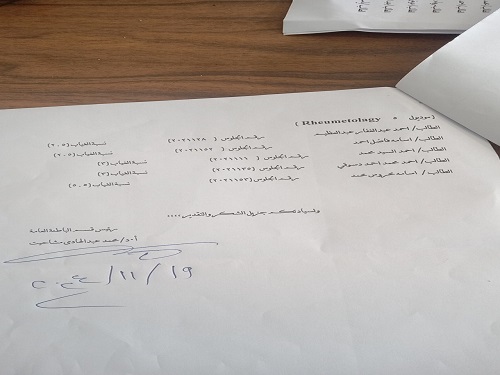 (موديول • Rheumetology)
الطالب/ احمد عبدالغفار عبدالعظيم رقم الجلوس ( ٢٠٢١١٢٨) نسبة الغياب(٢٠٥)
الطالب/ اسامه فاضل احمد رقم الجلوس ( ٢٠٢١١٥٢) نسبة الغياب(٢٠٥)
الطالب/ احمد السيد محمد رقم الجلوس ( ٢٠٢١١١١) نسبة الغياب(٣)
الطالب/ احمد محمد احمد دسوقي رقم الجلوس ( ٢٠٢١١٣٥) نسبة الغياب(٣)
الطالب/ اسامه محروس محمد رقم الجلوس ( ٢٠٢١١٥٣) نسبة الغياب(٥.٥)
ولسيادتكم جزيل الشكر والتقدير....
رئيس قسم الباطنة العامة
أ.د/ محمد عبدالهادى
١٩/١١/٢٠٢٤